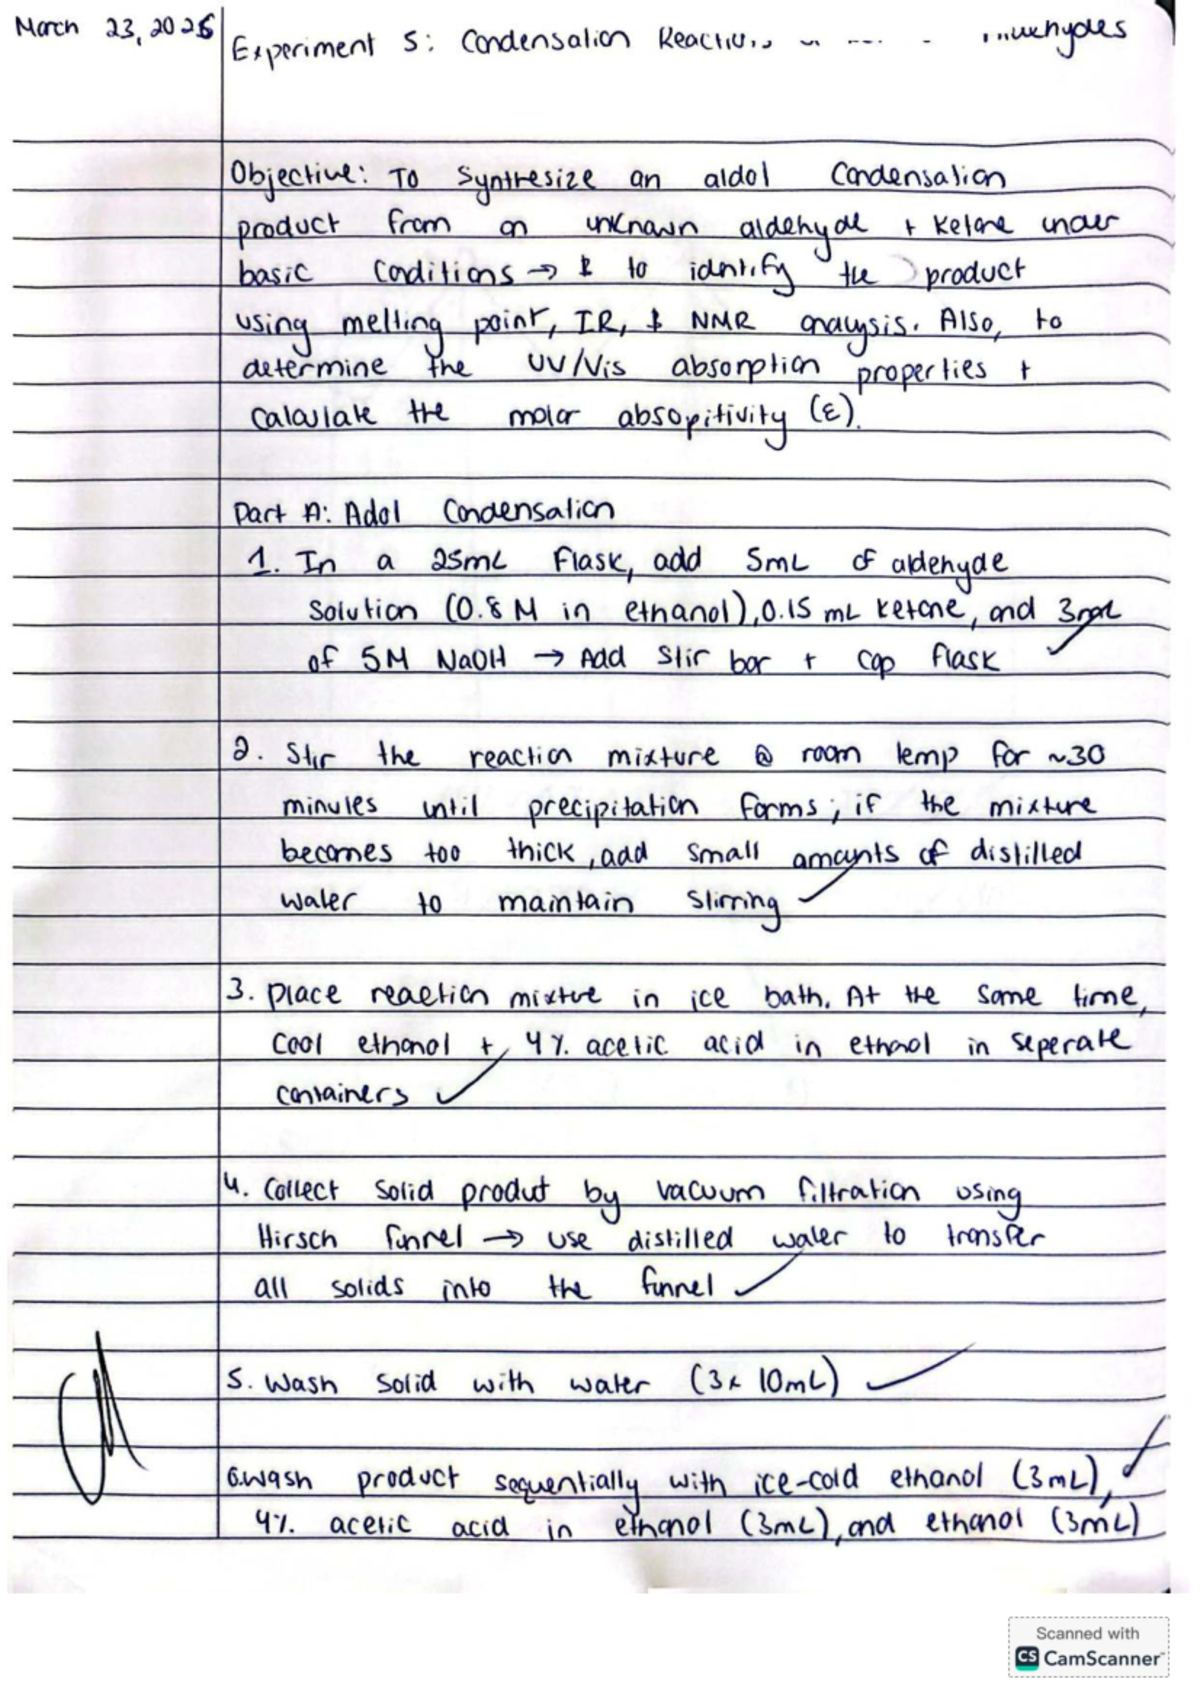 March 23, 2026
Experiment 5: Condensation
Objective: To synthesize an aldol condensation
product from an unknown aldehyde + ketone under
basic conditions → & to identify the product
using melting point, IR, & NMR anaysis. Also, to
determine the UV/Vis absorption properties +
calculate the molar absopitivity (ε).
Part A: Adol Condensation
1. In a 25mL flask, add 5mL of aldehyde
solution (0.8 M in ethanol), 0.15 mL ketone, and 3mL
of 5M NaOH → Add stir bar + cap flask ✓
2. Stir the reaction mixture @ room temp for ~30
minutes until precipitation forms; if the mixture
becomes too thick, add small amounts of distilled
water to maintain stirring ✓
3. place reaction mixture in ice bath. At the same time,
cool ethanol + 4% acetic acid in ethanol in seperate
containers ✓
4. Collect solid produt by vacuum filtration using
Hirsch funnel → use distilled water to transfer
all solids into the funnel ✓
5. Wash solid with water (3x 10mL) ✓
6. wash product sequentially with ice-cold ethanol (3mL), ✓
4% acetic acid in ethanol (3mL), and ethanol (3mL)
Scanned with
CS CamScanner